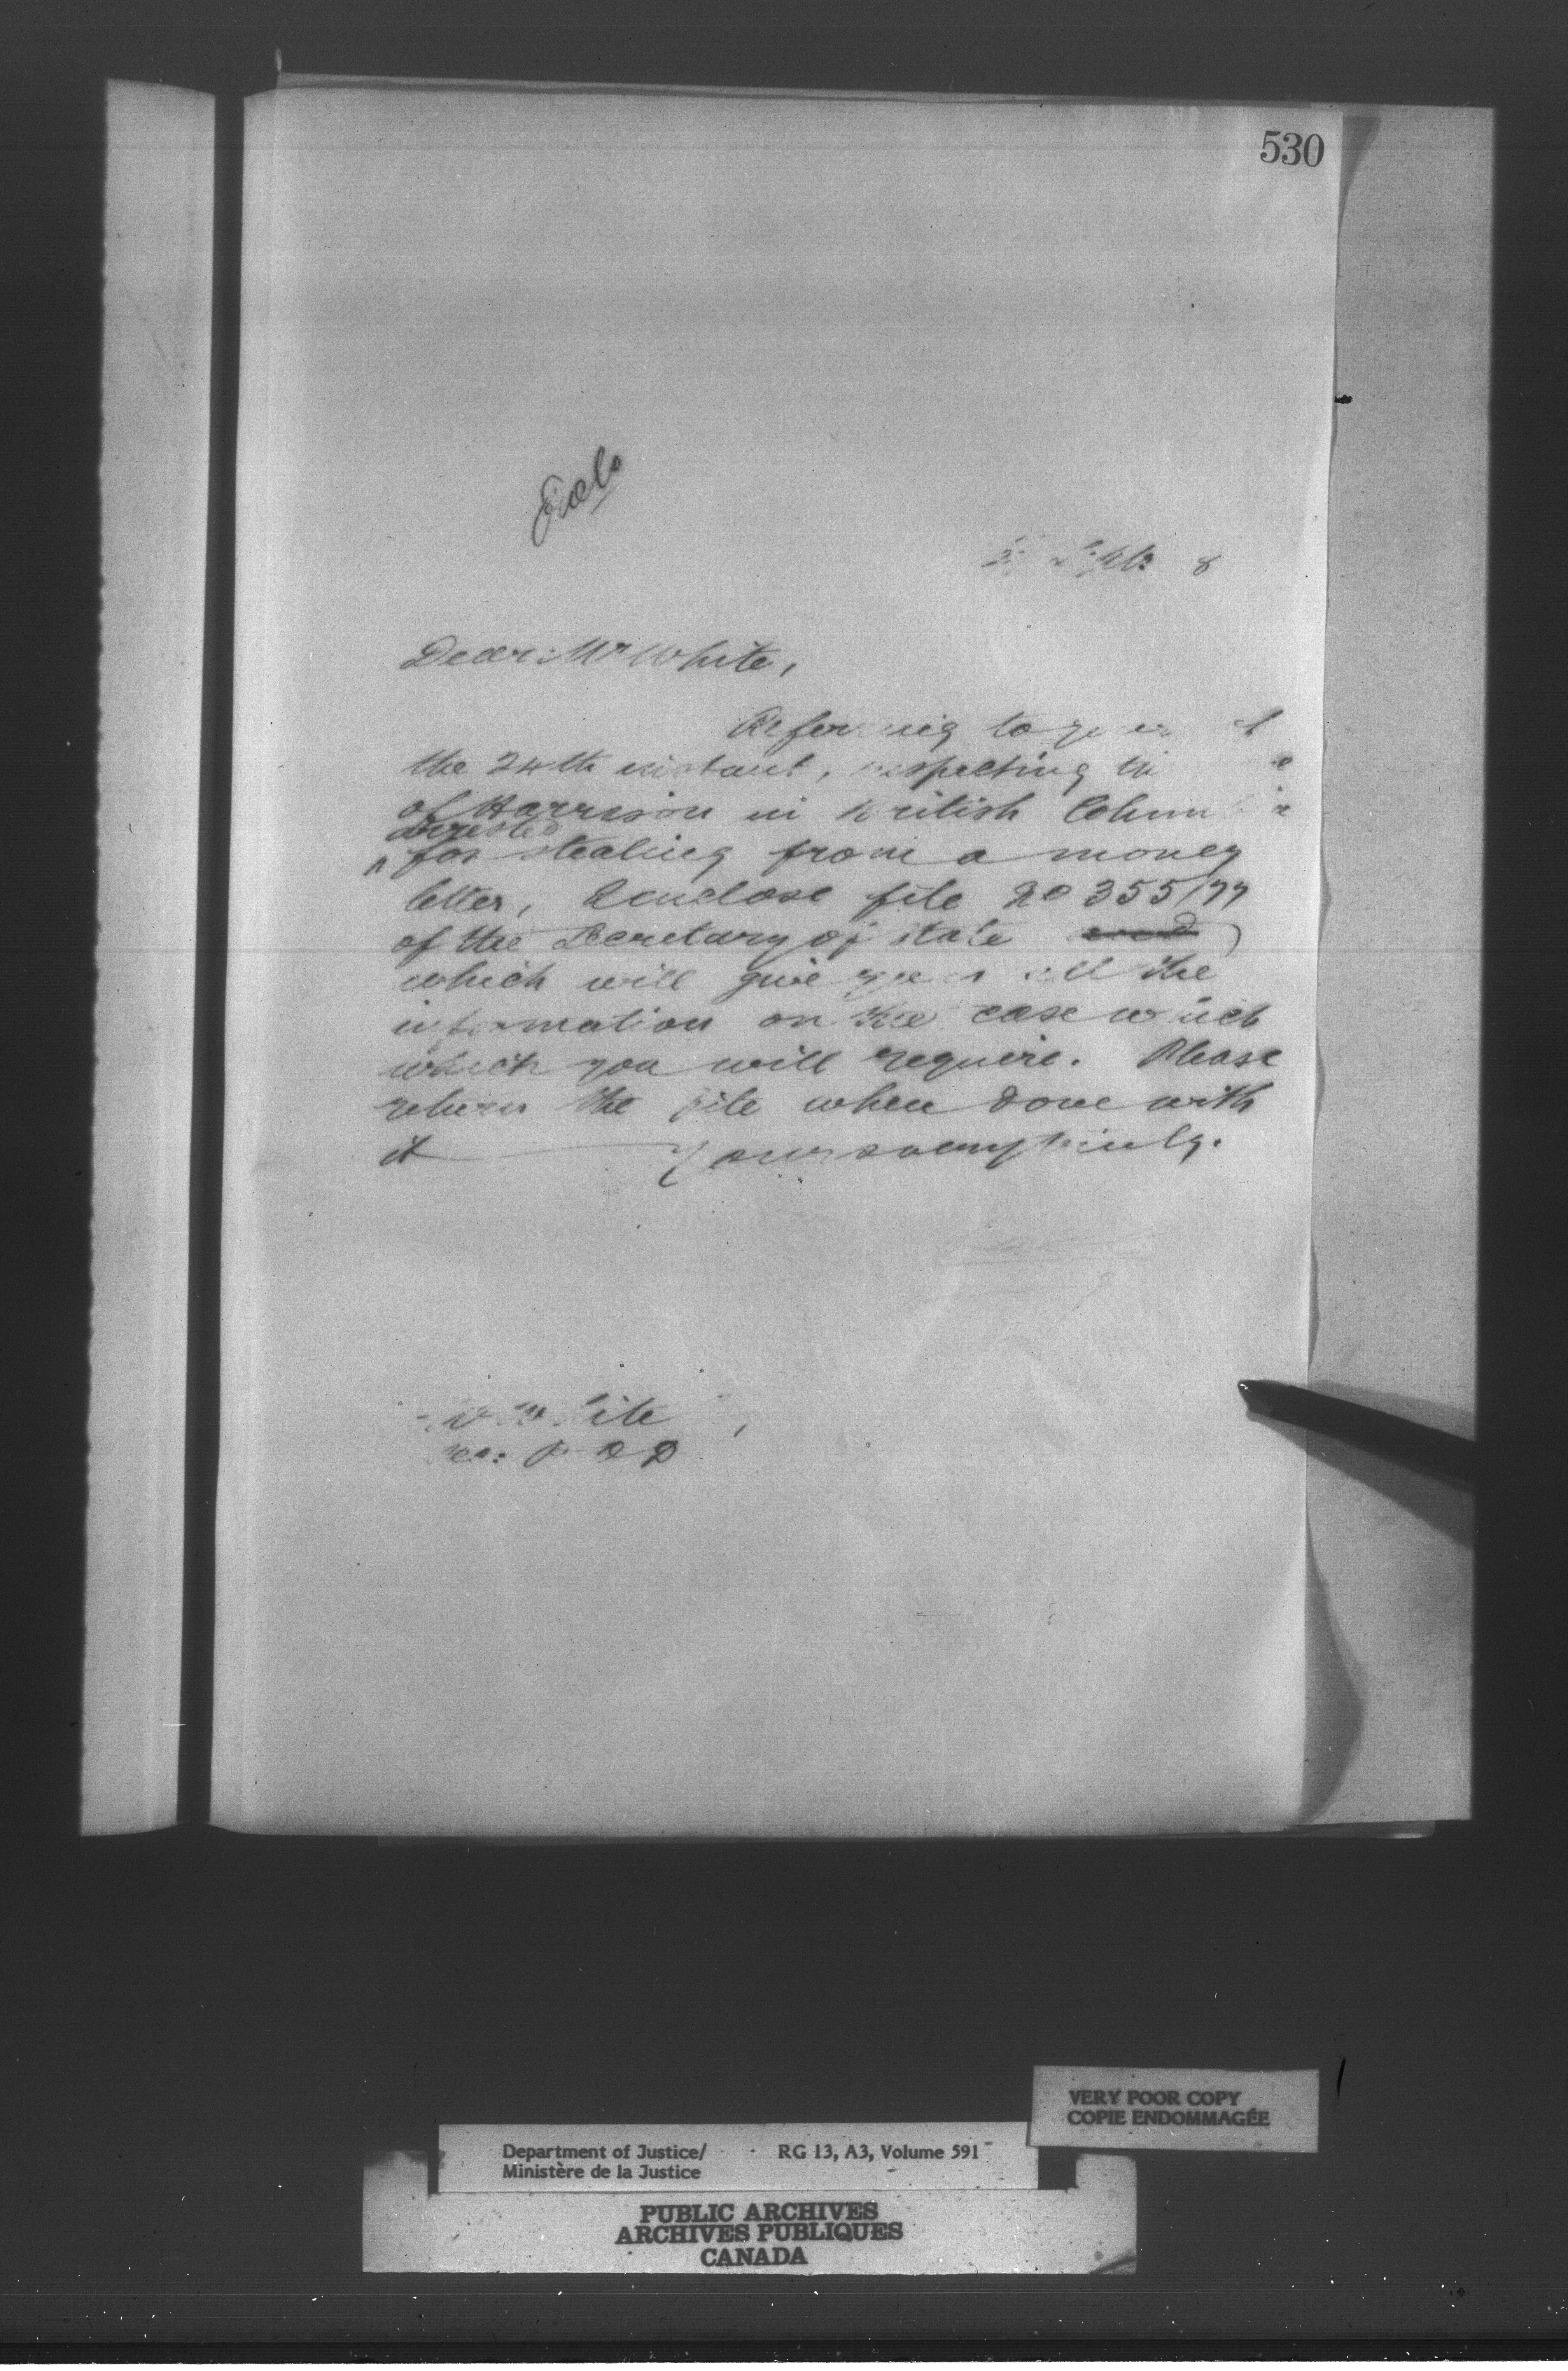 530
Dear Mr White,
Referring to your
the 24th instant, respecting
of Harrison in British Columbia
arrested
^ for stealing from a money
letter, I enclose file 20355/77
of the Secretary of State and
which will give you all the
information on the case which
which you will require. Please
return the file when done with
it Yours very truly.
White
VERY POOR COPY
COPIE ENDOMMAGÉE
Department of Justice/ RG 13, A3, Volume 591
Ministère de la Justice
PUBLIC ARCHIVES
ARCHIVES PUBLIQUES
CANADA